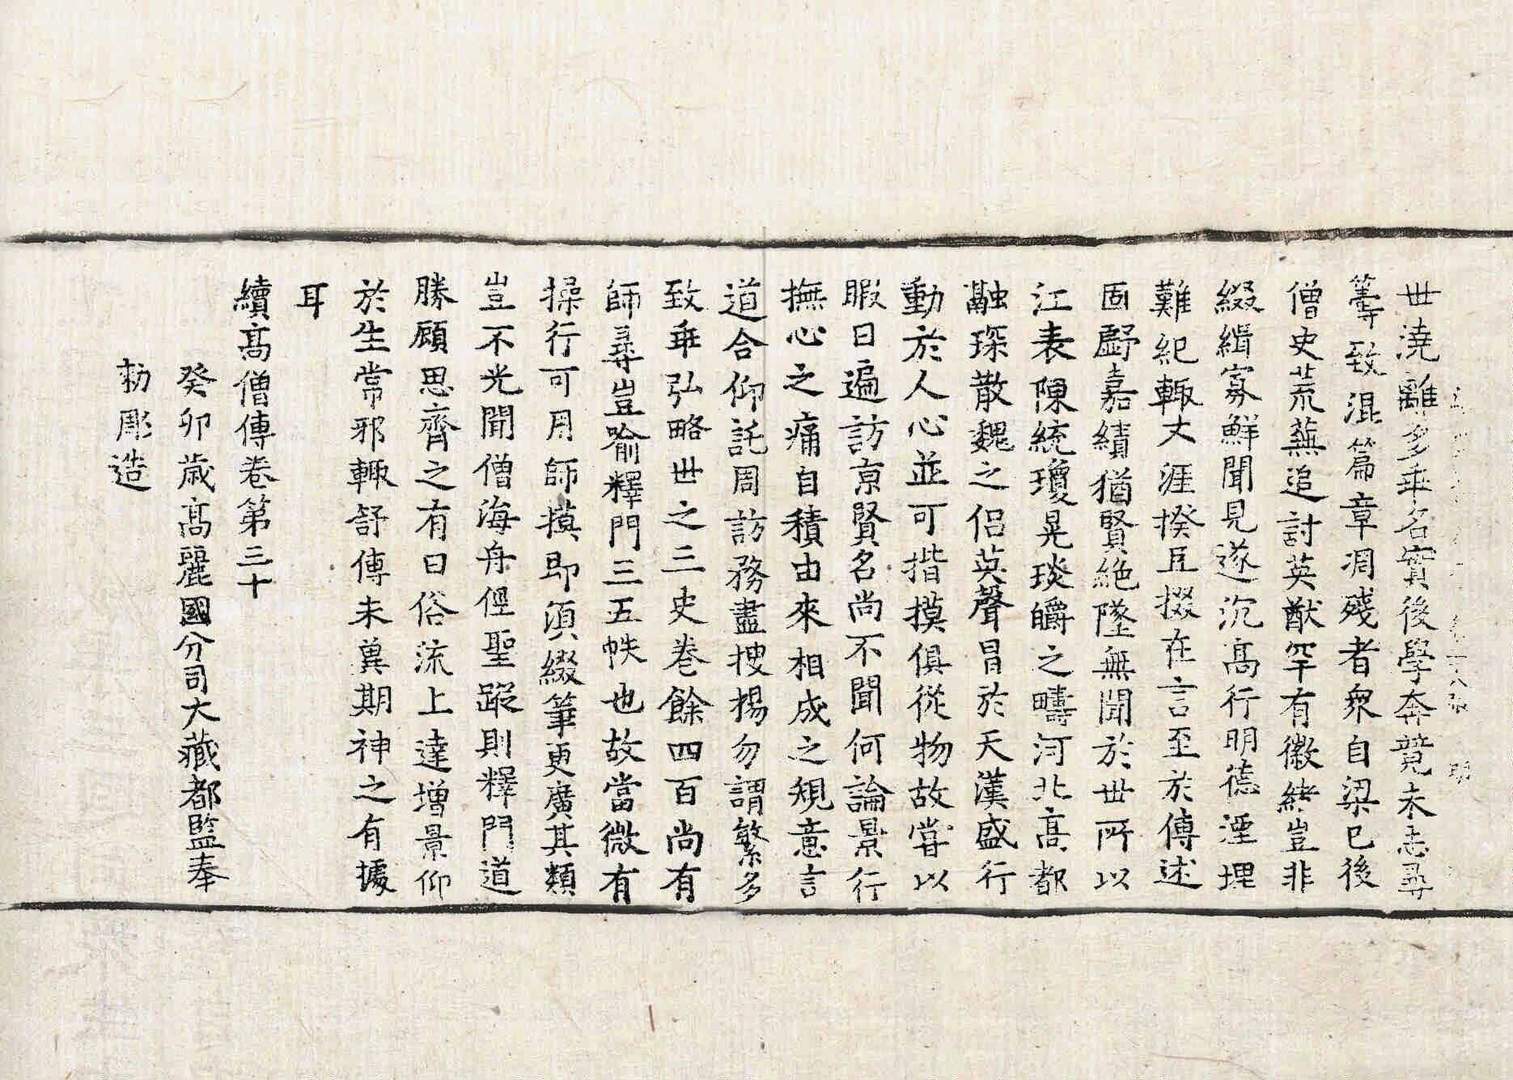 世澆離多乖名實後學奔競未志尋
籌致混篇章凋殘者衆自梁已後
僧史荒蕪追討英猷罕有徽緒豈非
綴緝寡鮮聞見遂沉高行明德湮埋
難紀輒丈涯揆且掇在言至於傳述
固嚼嘉績猶賢絶墜無聞於世所以
江表陳統瓊晃琰皭之疇河北高都
融琛散魏之侶英聲冒於天漢盛行
動於人心並可揩摸俱從物故甞以
暇日遍訪京賢名尚不聞何論景行
撫心之痛自積由來相成之䂓意言
道合仰託周訪務盡搜揚勿謂繁多
致乖弘略世之三史卷餘四百尚有
師尋豈喻釋門三五帙也故當微有
操行可用師摸即須綴筆更廣其類
豈不光聞僧海舟徑聖蹤則釋門道
勝顧思齊之有日俗流上達增景仰
於生常邪輒舒傳末冀期神之有據
耳
續高僧傳卷第三十
癸卯歲高麗國分司大藏都監奉
勅彫造